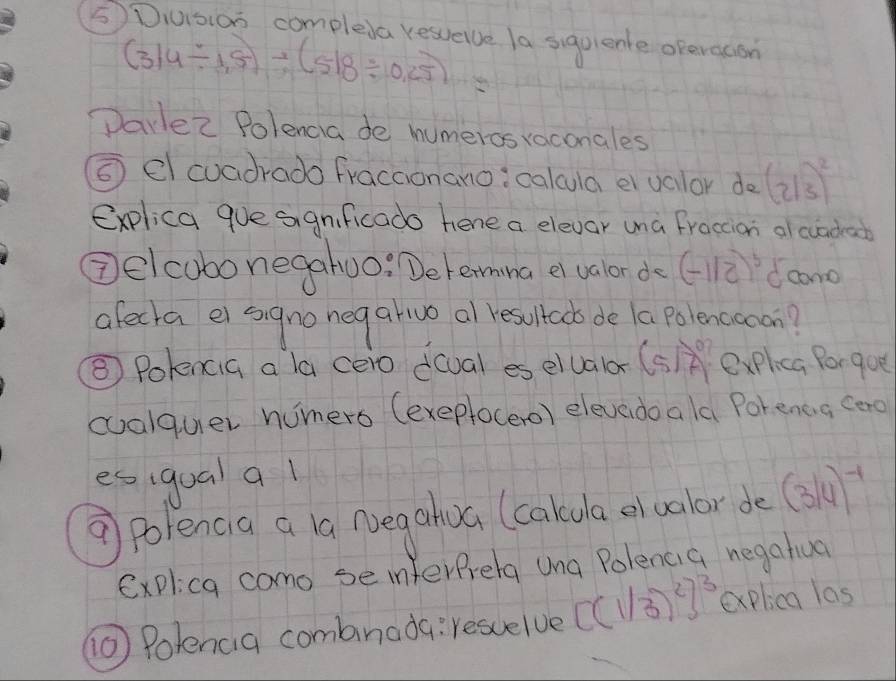 ⑤ División compleja resuelve la siguiente operación
(3/4 ÷ 1,5) ÷ (5/8 ÷ 0,25) =
Parte 2 Potencia de numeros racionales
⑥ el cuadrado fraccionario: calcula el valor de (2/3)²
Explica que significado tiene a elevar una fracción al cuadrado
⑦ el cubo negativo: Determina el valor de (-1/2)³ ¿como
afecta el signo negativo al resultado de la potenciacion?
⑧ Potencia a la cero ¿cual es el valor (5/7)⁰? explica Por que
cualquier número (exepto cero) elevado a la Potencia cero
es igual a 1
⑨ Potencia a la Negativa (calcula el valor de (3/4)⁻¹
Explica como se interpreta una Potencia negativa
⑩ Potencia combinada: resuelve [(1/3)²]³ explica las